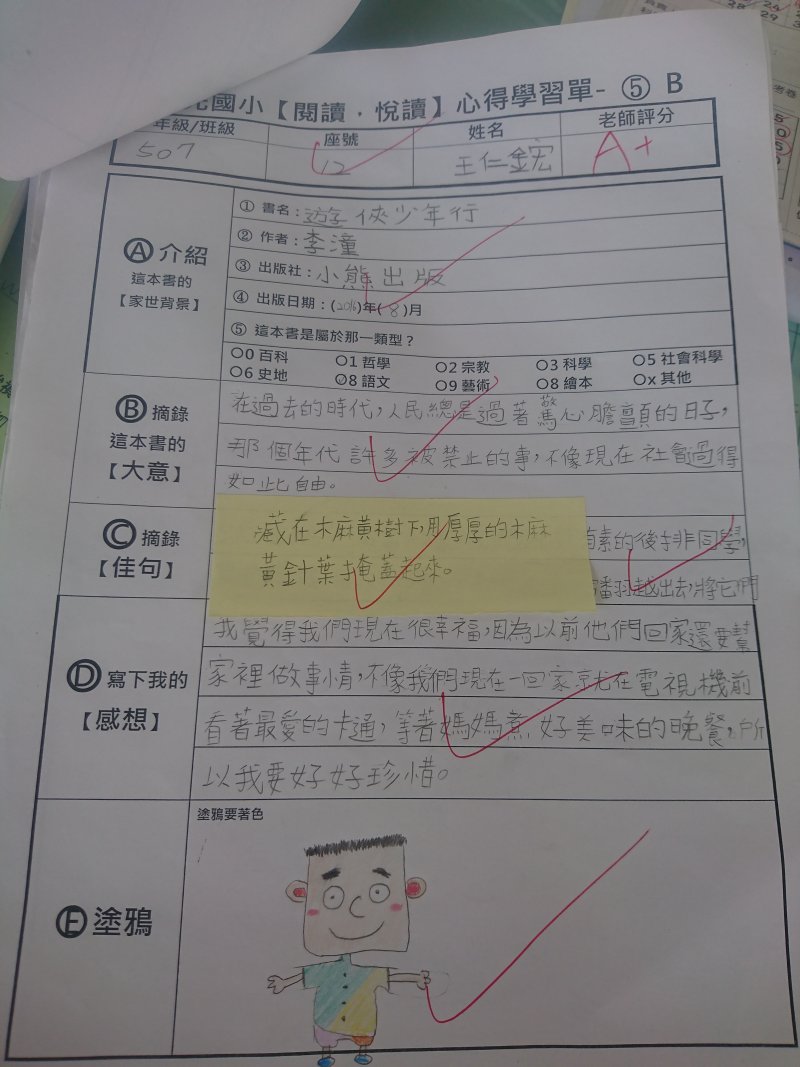 國小【閱讀．悅讀】心得學習單- ⑤ B
年級/班級 座號 姓名 老師評分
507 12 王仁鋐 A+
Ⓐ 介紹
這本書的
【家世背景】
① 書名：遊俠少年行
② 作者：李潼
③ 出版社：小熊出版
④ 出版日期：(2016)年(8)月
⑤ 這本書是屬於那一類型？
○0 百科 ○1 哲學 ○2 宗教 ○3 科學 ○5 社會科學
○6 史地 ○8 語文 ○9 藝術 ○8 繪本 ○x 其他
Ⓑ 摘錄
這本書的
【大意】
在過去的時代，人民總是過著驚心膽顫的日子，
那個年代許多被禁止的事，不像現在社會過得
如此自由。
Ⓒ 摘錄
【佳句】
藏在木麻黃樹下，用厚厚的木麻
黃針葉掩蓋起來。
素的後排同學，
翻越出去，將它們
Ⓓ 寫下我的
【感想】
我覺得我們現在很幸福，因為以前他們回家還要幫
家裡做事情，不像我們現在一回家就在電視機前
看著最愛的卡通，等著媽媽煮好美味的晚餐，所
以我要好好珍惜。
Ⓔ 塗鴉
塗鴉要著色